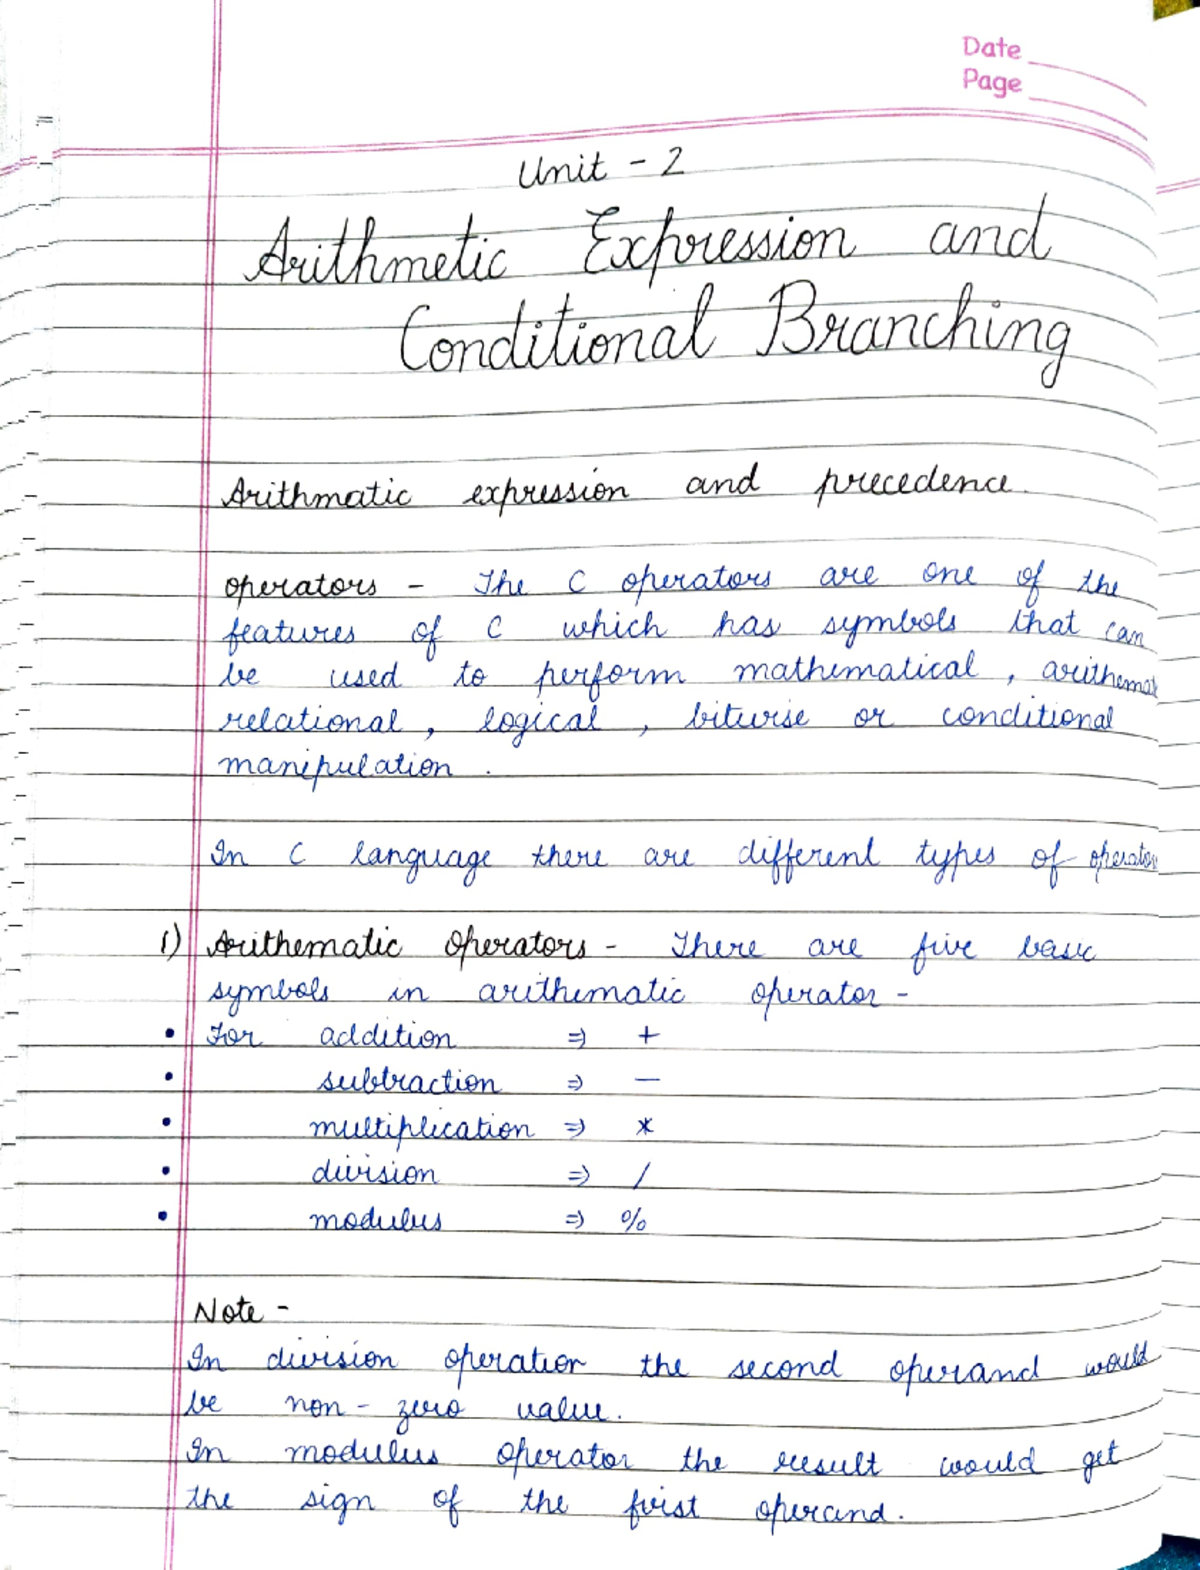 Date
Page
Unit - 2
Arithmetic Expression and
Conditional Branching
Arithmatic expression and precedence.
operators - The C operators are one of the
features of C which has symbols that can
be used to perform mathematical, arithemat
relational, logical, bitwise or conditional
manipulation.
In C language there are different types of operators
1) Arithematic Operators - There are five basic
symbols in arithematic operator -
• For addition ⇒ +
• subtraction ⇒ —
• multiplication ⇒ *
• division ⇒ /
• modulus ⇒ %
Note -
In division operation the second operand would
be non-zero value.
In modulus operator the result would get
the sign of the first operand.